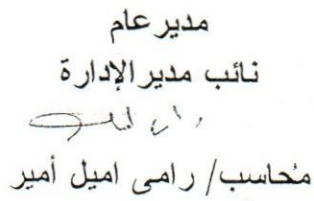 مدير عام
نائب مدير الإدارة
محاسب/ رامى اميل أمير